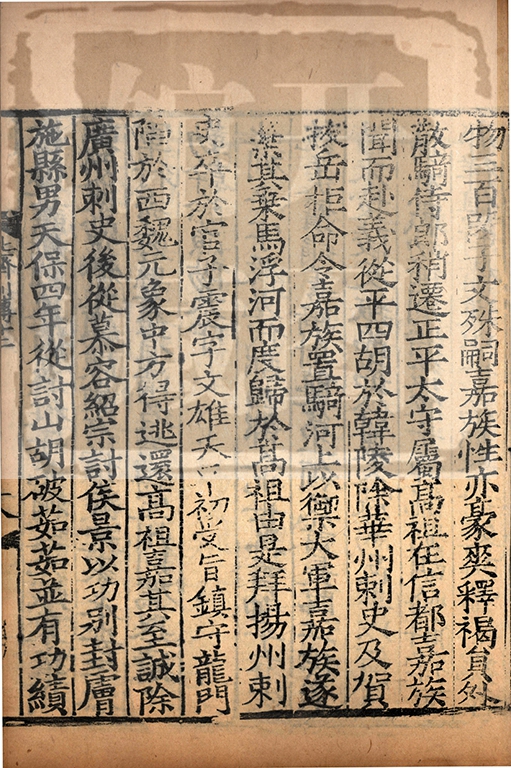 物三百段子文殊嗣嘉族性亦豪爽釋褐員外
散騎侍郎稍遷正平太守屬高祖在信都嘉族
聞而赴義從平四胡於韓陵除華州刺史及賀
拔岳拒命令嘉族置騎河上以禦大軍嘉族遂
棄其乗馬浮河而度歸於高祖由是拜揚州刺
史卒於官子震字文雄天平初受旨鎮守龍門
陷於西魏元象中方得逃還高祖嘉其至誠除
廣州刺史後從慕容紹宗討侯景以功别封膚
施縣男天保四年從討山胡破茹茹並有功績